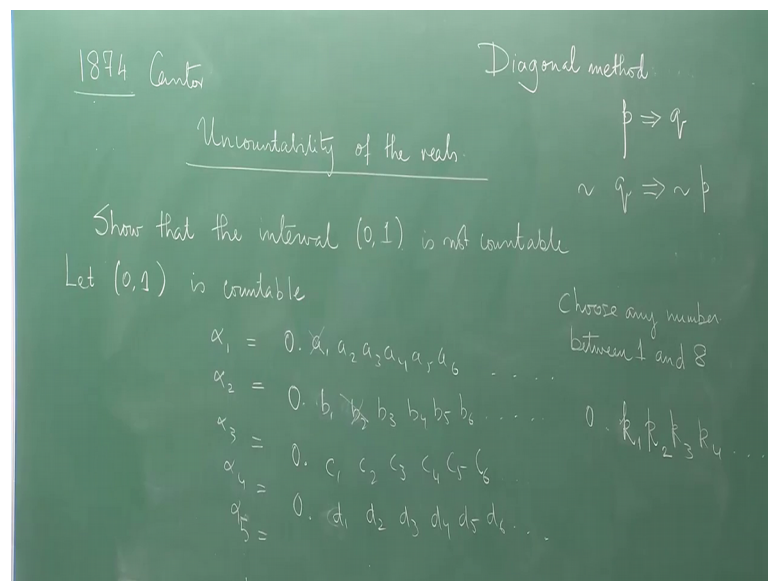 1874 Cantor
Diagonal method
p ⇒ q
~ q ⇒ ~ p
Uncountability of the reals.
Show that the interval (0,1) is not countable
Let (0,1) is countable
α₁ = 0. a₁ a₂ a₃ a₄ a₅ a₆ .....
α₂ = 0. b₁ b₂ b₃ b₄ b₅ b₆ .....
α₃ = 0. c₁ c₂ c₃ c₄ c₅ c₆
α₄ = 0. d₁ d₂ d₃ d₄ d₅ d₆ ...
α₅ =
Choose any number
between 1 and 8
0. k₁ k₂ k₃ k₄ ....